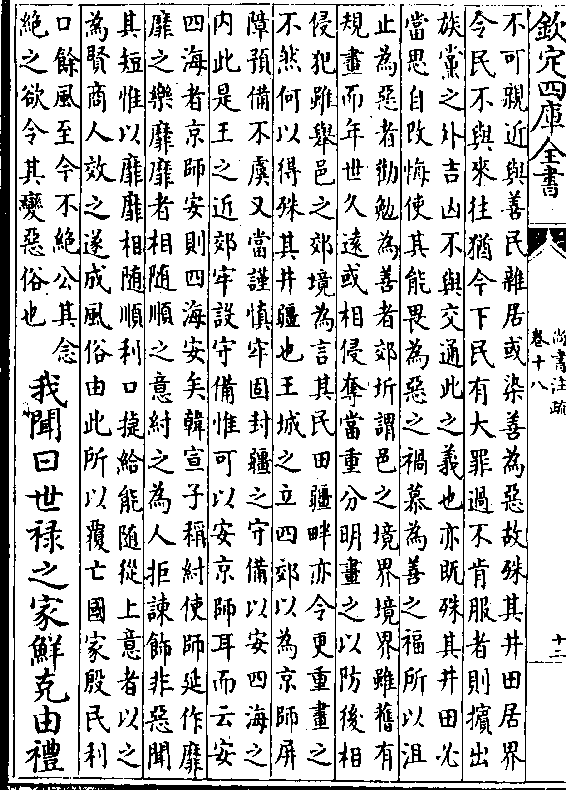 欽定四庫全書
尚書注疏
卷十八
十二
不可親近與善民雜居或染善為惡故殊其井田居界
令民不與來往猶今下民有大罪過不肯服者則擯出
族黨之外吉凶不與交通此之義也亦既殊其井田必
當思自改悔使其能畏為惡之禍慕為善之福所以沮
止為惡者勸勉為善者郊圻謂邑之境界境界雖舊有
規畫而年世久遠或相侵奪當重分明畫之以防後相
侵犯雖舉邑之郊境為言其民田疆畔亦令更重畫之
不然何以得殊其井疆也王城之立四郊以為京師屏
障預備不虞又當謹慎牢固封疆之守備以安四海之
内此是王之近郊牢設守備惟可以安京師耳而云安
四海者京師安則四海安矣韓宣子稱紂使師延作靡
靡之樂靡靡者相隨順之意紂之為人拒諫飾非惡聞
其短惟以靡靡相隨順利口捷給能隨從上意者以之
為賢商人效之遂成風俗由此所以覆亡國家殷民利
口餘風至今不絶公其念
絶之欲令其變惡俗也
我聞曰世禄之家鮮克由禮